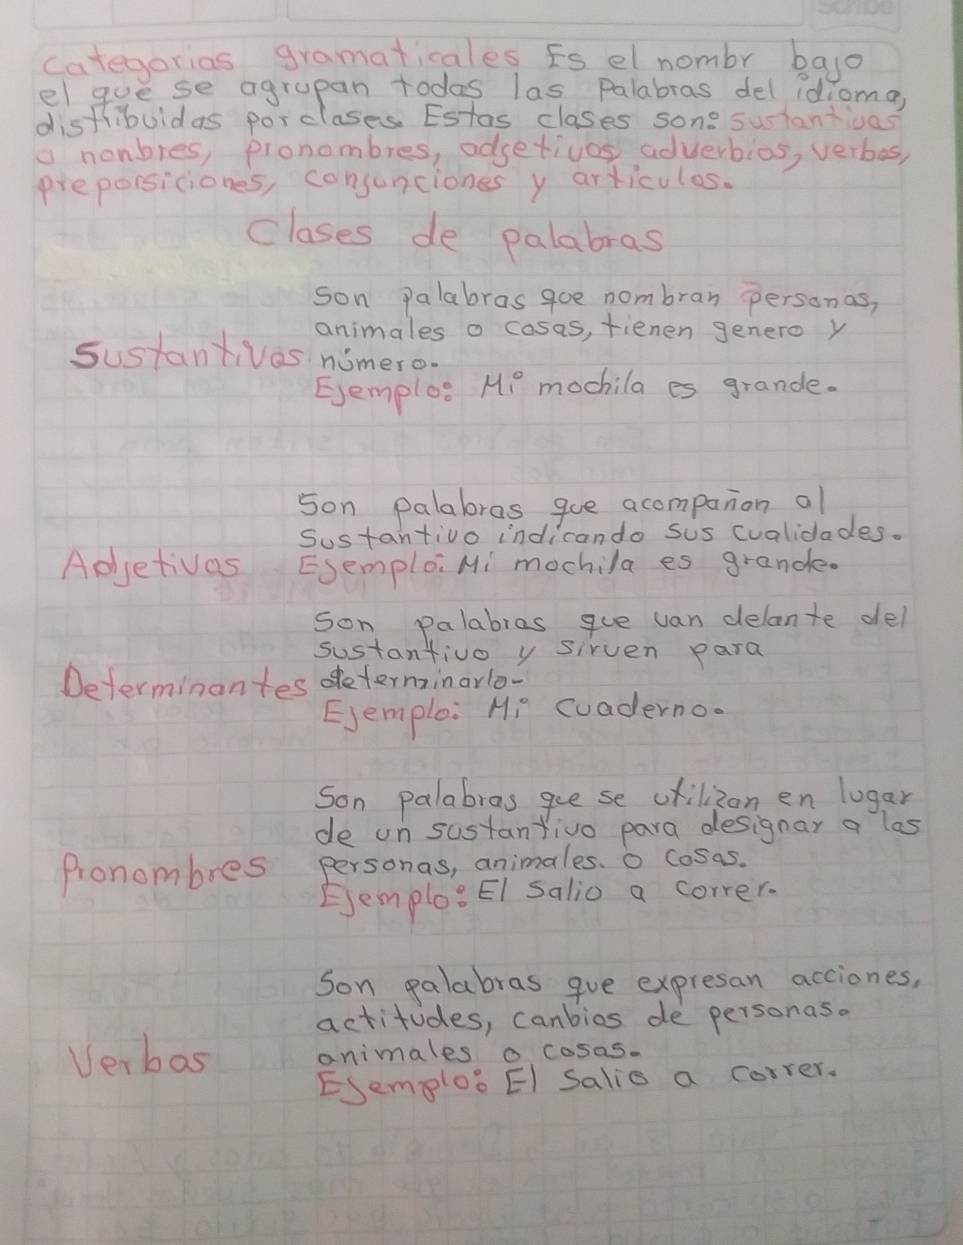 scribe
categorias gramaticales Es el nombr bajo
el que se agrupan todas las Palabras del idioma,
distribuidas por clases. Estas clases son: sustantivos
o nonbres, pronombres, adjetivos, adverbios, verbos,
preporsiciones, conjunciones y articulos.
Clases de palabras
Son palabras que nombran personas,
animales o cosas, tienen genero y
Sustantivos número.
Ejemplo: Mi mochila es grande.
Son palabras que acompañon al
Sustantivo indicando sus cualidades.
Adjetivos Ejemplo: Mi mochila es grande.
Son palabras que van delante del
sustantivo y sirven para
Determinantes determinarlo-
Ejemplo: Mi cuaderno.
Son palabras que se utilizan en lugar
de un sustantivo para designar a las
Pronombres personas, animales. o cosas.
Ejemplo: El salio a correr.
Son palabras que expresan acciones,
actitudes, canbios de personas.
Verbos animales o cosas.
Ejemplo: El salio a correr.